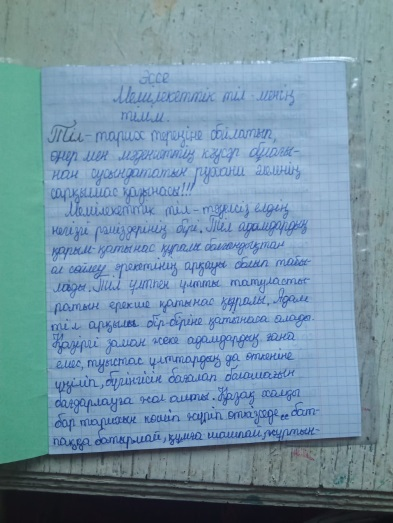 Эссе
Мемілекеттік тіл - менің
тілім.
Тіл - тарих тереңіне бойлатып,
өнер мен мәдениеттің кәусар бұлағы-
нан сусындататын рухани әлемнің
сарқылмас қазынасы!!!
Мемілекеттік тіл - тәуелсіз елдің
негізгі рәміздерінің бірі. Тіл адамдардың
қарым-қатынас құралы болғандықтан
ол сөйлеу әрекетінің арқауы болып табы-
лады. Тіл ұлтпен ұлтты татуласты-
ратын ерекше қатынас құралы. Адам
тіл арқылы бір-біріне қатынаса алады.
Қазіргі заман жеке адамдардың ғана
емес, туыстас ұлттардың да өткеніне
үңіліп, бүгінгісін бағалап болашағын
бағдарлауға жол ашты. Қазақ халқы
бар тарихын көшіп жүріп өткізседе
пақда батырмай, құмға шашпай, жұртын-